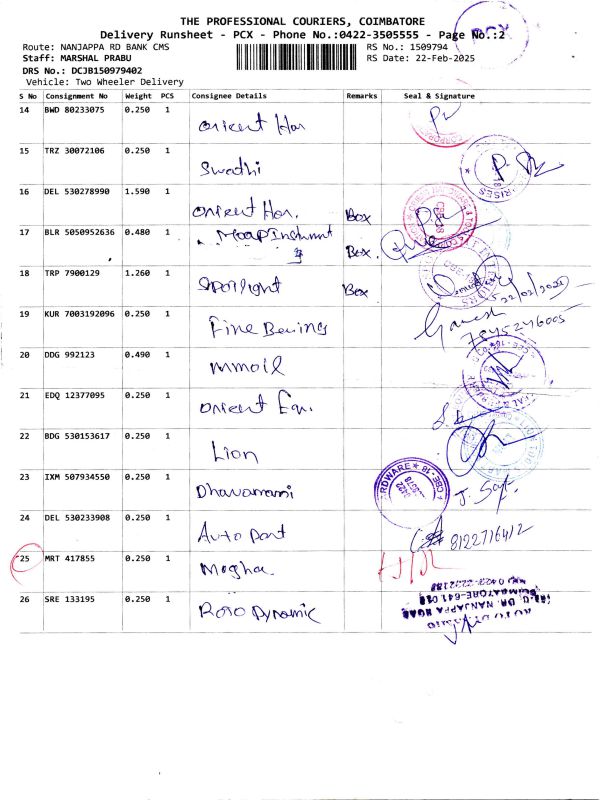 THE PROFESSIONAL COURIERS, COIMBATORE
PCX
Delivery Runsheet - PCX - Phone No.:0422-3505555 - Page No.:2
Route: NANJAPPA RD BANK CMS
RS No.: 1509794
Staff: MARSHAL PRABU
RS Date: 22-Feb-2025
DRS No.: DCJB150979402
Vehicle: Two Wheeler Delivery
S No Consignment No Weight PCS Consignee Details Remarks Seal & Signature
14 BWD 80233075 0.250 1 Orient Har
15 TRZ 30072106 0.250 1 Swathi
16 DEL 530278990 1.590 1 Orient Har. Box
17 BLR 5050952636 0.480 1 Box.
18 TRP 7900129 1.260 1 Spotlight Box
19 KUR 7003192096 0.250 1 Fine Berings Ganesh 7845246005
20 DDG 992123 0.490 1 mmoil
21 EDQ 12377095 0.250 1 Orient Eqn.
22 BDG 530153617 0.250 1 Lion
23 IXM 507934550 0.250 1 Dhavamani
24 DEL 530233908 0.250 1 Auto Part 8122716412
25 MRT 417855 0.250 1 Megha
26 SRE 133195 0.250 1 Roto Dynamic